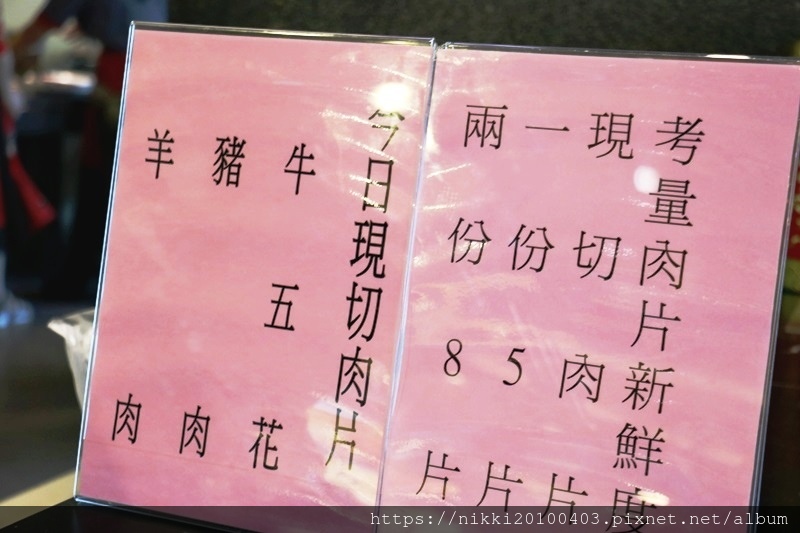 考量肉片新鮮度
現切肉片
一份5片
兩份8片
今日現切肉片
牛五花
豬肉
羊肉
https://nikki20100403.pixnet.net/album